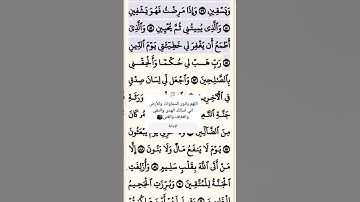 وَيَسْقِينِ ۝ وَإِذَا مَرِضْتُ فَهُوَ يَشْفِينِ
۝ وَالَّذِي يُمِيتُنِي ثُمَّ يُحْيِينِ ۝ وَالَّذِي
أَطْمَعُ أَن يَغْفِرَ لِي خَطِيئَتِي يَوْمَ الدِّينِ
۝ رَبِّ هَبْ لِي حُكْمًا وَأَلْحِقْنِي
بِالصَّالِحِينَ ۝ وَاجْعَل لِّي لِسَانَ صِدْقٍ
فِي الْآخِرِينَ
وَرَثَةِ
جَنَّةِ
اللهم يانور السماوات والأرض
اني اسألك الهدى والتقى
والعفاف والغنى
كَانَ
مِنَ الضَّالِّينَ
يَوْمَ يُبْعَثُونَ
۝ يَوْمَ لَا يَنفَعُ مَالٌ وَلَا بَنُونَ ۝ إِلَّا
مَنْ أَتَى اللَّهَ بِقَلْبٍ سَلِيمٍ ۝ وَأُزْلِفَتِ
الْجَنَّةُ لِلْمُتَّقِينَ ۝ وَبُرِّزَتِ الْجَحِيمُ